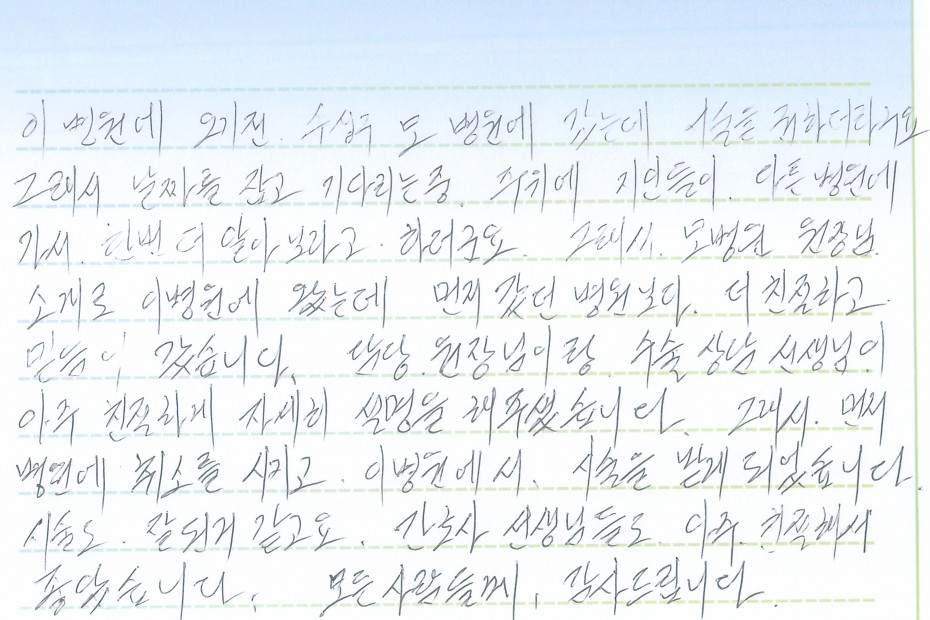 이 병원에 오기전. 수십주 모 병원에 갔는데 시술을 권하더라구요
그래서 날짜를 잡고 기다리는중. 주위에 지인들이. 다른병원에
가서. 한번 더 알아 보라고. 하더군요. 그래서. 모병원 원장님.
소개로 이병원에 왔는데 먼저 갔던 병원보다. 더 친절하고.
믿음이 갔습니다. 담당. 원장님이랑. 수술 상담 선생님이
아주 친절하게 자세히 설명을 해주셨습니다. 그래서. 먼저
병원에 취소를 시키고. 이병원에서. 시술을 받게 되었습니다.
시술도. 잘된거 같고요. 간호사 선생님들도. 아주. 친절해서
좋았습니다. 모든사람들께. 감사드립니다.